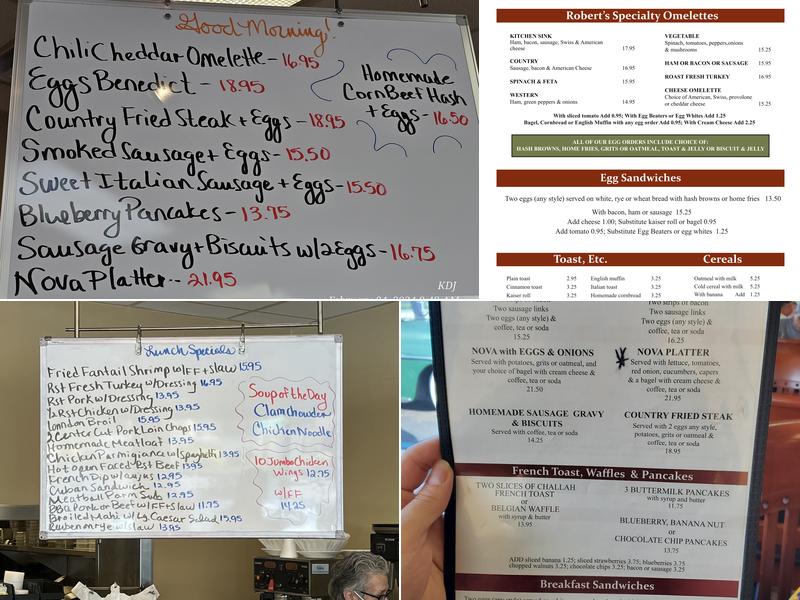 Good Morning!
Chili Cheddar Omelette - 16.95
Eggs Benedict - 18.95
Country Fried Steak + Eggs - 18.95
Smoked Sausage + Eggs - 15.50
Sweet Italian Sausage + Eggs - 15.50
Blueberry Pancakes - 13.75
Sausage Gravy + Biscuits w/2 Eggs - 16.75
Nova Platter -- 21.95
Homemade
Corn Beef Hash
+ Eggs - 16.50
KDJ
Robert's Specialty Omelettes
KITCHEN SINK
Ham, bacon, sausage, Swiss & American
cheese 17.95
COUNTRY
Sausage, bacon & American Cheese 16.95
SPINACH & FETA 15.95
WESTERN
Ham, green peppers & onions 14.95
VEGETABLE
Spinach, tomatoes, peppers,onions
& mushrooms 15.25
HAM OR BACON OR SAUSAGE 15.95
ROAST FRESH TURKEY 16.95
CHEESE OMELETTE
Choice of American, Swiss, provolone
or cheddar cheese 15.25
With sliced tomato Add 0.95; With Egg Beaters or Egg Whites Add 1.25
Bagel, Cornbread or English Muffin with any egg order Add 0.95; With Cream Cheese Add 2.25
ALL OF OUR EGG ORDERS INCLUDE CHOICE OF:
HASH BROWNS, HOME FRIES, GRITS OR OATMEAL, TOAST & JELLY OR BISCUIT & JELLY
Egg Sandwiches
Two eggs (any style) served on white, rye or wheat bread with hash browns or home fries 13.50
With bacon, ham or sausage 15.25
Add cheese 1.00; Substitute kaiser roll or bagel 0.95
Add tomato 0.95; Substitute Egg Beaters or egg whites 1.25
Toast, Etc.
Plain toast 2.95
Cinnamon toast 3.25
Kaiser roll 3.25
English muffin 3.25
Italian toast 3.25
Homemade cornbread 3.25
Cereals
Oatmeal with milk 5.25
Cold cereal with milk 5.25
With banana Add 1.25
Lunch Specials
Fried Fantail Shrimp w/FF + slaw 15.95
Rst Fresh Turkey w/Dressing 16.95
Rst Pork w/Dressing 13.95
1/2 Rst Chicken w/Dressing 13.95
London Broil 15.95
2 Center Cut Pork Loin Chops 15.95
Homemade Meatloaf 13.95
Chicken Parmigiana w/spaghetti 13.95
Hot Open Faced Rst Beef 13.95
French Dip w/au jus 12.95
Cuban Sandwich 12.95
Meatball Parm Sub 12.95
BBQ Pork or Beef w/FF + slaw 11.75
Broiled Mahi w/Lg Caesar Salad 15.95
Ruben on rye w/slaw 13.95
Soup of the Day
Clam Chowder
Chicken Noodle
10 Jumbo Chicken
Wings 12.75
w/FF
14.25
Two sausage links
Two eggs (any style) &
coffee, tea or soda
15.25
Two strips of bacon
Two sausage links
Two eggs (any style) &
coffee, tea or soda
16.25
NOVA with EGGS & ONIONS
Served with potatoes, grits or oatmeal, and
your choice of bagel with cream cheese &
coffee, tea or soda
21.50
NOVA PLATTER
Served with lettuce, tomatoes,
red onion, cucumbers, capers
& a bagel with cream cheese &
coffee, tea or soda
21.95
HOMEMADE SAUSAGE GRAVY
& BISCUITS
Served with coffee, tea or soda
14.25
COUNTRY FRIED STEAK
Served with 2 eggs any style,
potatoes, grits or oatmeal &
coffee, tea or soda
18.95
French Toast, Waffles & Pancakes
TWO SLICES OF CHALLAH
FRENCH TOAST
or
BELGIAN WAFFLE
with syrup & butter
13.95
3 BUTTERMILK PANCAKES
with syrup and butter
11.75
BLUEBERRY, BANANA NUT
or
CHOCOLATE CHIP PANCAKES
13.75
ADD sliced banana 1.25; sliced strawberries 3.75; blueberries 3.75
chopped walnuts 3.25; chocolate chips 3.25; bacon or sausage 3.25
Breakfast Sandwiches